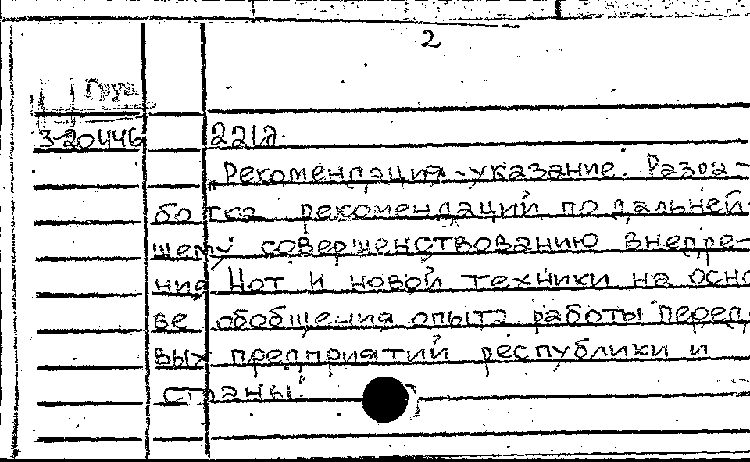 2
Груп
3-20446 221л.
Рекомендация-указание. Разра-
ботка рекомендаций по дальней-
шему совершенствованию внедре-
ния Нот и новой техники на осно
ве обобщения опыта работы передо
вых предприятий республики и
страны.